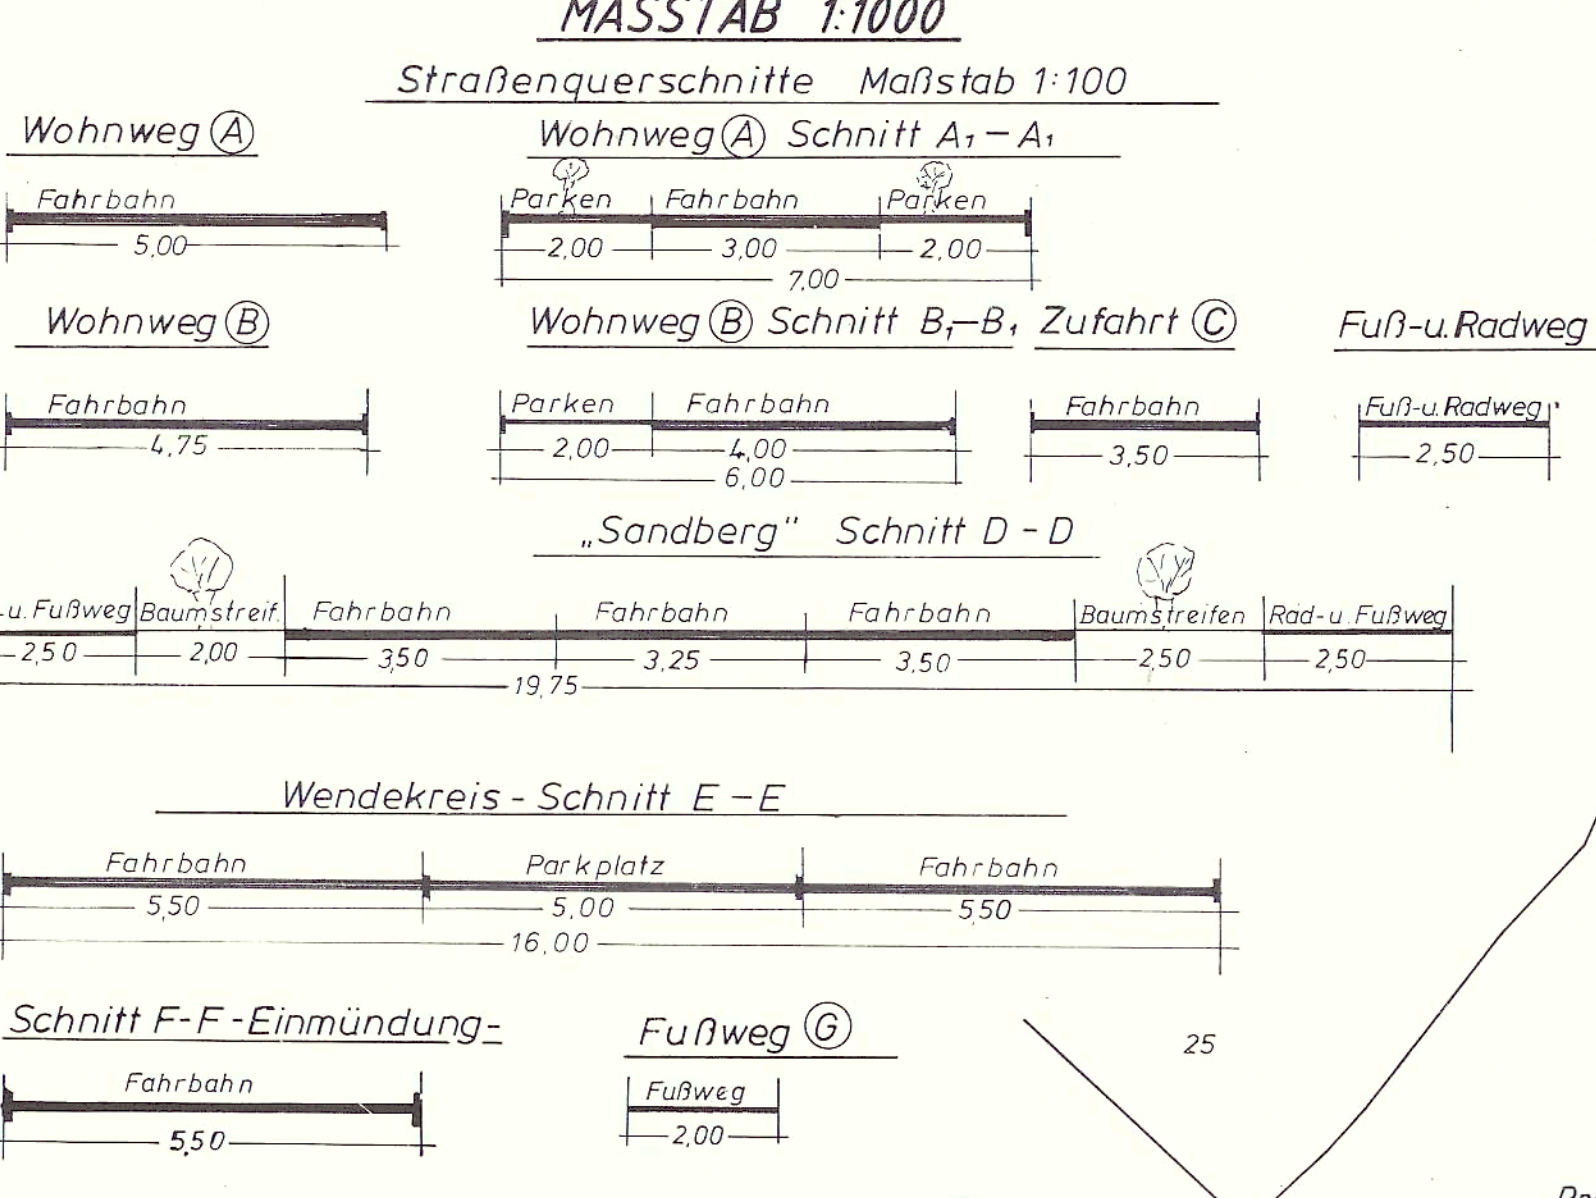 MASSTAB 1:1000
Straßenquerschnitte Maßstab 1:100
Wohnweg A
Wohnweg A Schnitt A₁–A₁
Fahrbahn
5,00
Parken Fahrbahn Parken
2,00 3,00 2,00
7,00
Wohnweg B
Wohnweg B Schnitt B₁–B₁
Zufahrt C
Fuß-u.Radweg
Fahrbahn
4,75
Parken Fahrbahn
2,00 4,00
6,00
Fahrbahn
3,50
Fuß-u.Radweg
2,50
„Sandberg" Schnitt D - D
-u. Fußweg Baumstreif. Fahrbahn Fahrbahn Fahrbahn Baumstreifen Rad-u. Fußweg
2,50 2,00 3,50 3,25 3,50 2,50 2,50
19,75
Wendekreis - Schnitt E – E
Fahrbahn Parkplatz Fahrbahn
5,50 5,00 5,50
16,00
Schnitt F-F-Einmündung-
Fahrbahn
5,50
Fußweg G
Fußweg
2,00
25